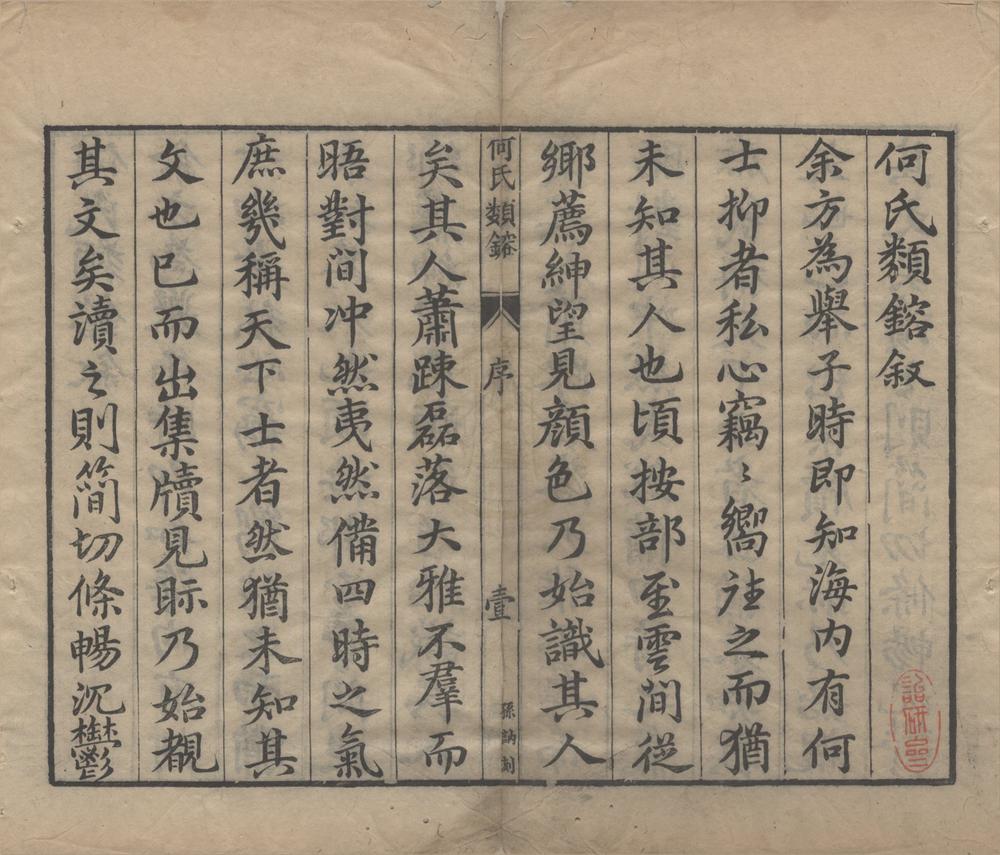 何氏類鎔叙
余方為舉子時即知海内有何
士抑者私心竊〻嚮往之而猶
未知其人也頃按部至雲間從
鄉薦紳望見顔色乃始識其人
何氏類鎔
序
壹
孫訥刻
矣其人蕭踈磊落大雅不羣而
晤對間冲然夷然備四時之氣
庶幾稱天下士者然猶未知其
文也已而出集牘見眎乃始覩
其文矣讀之則簡切條暢沉鬱